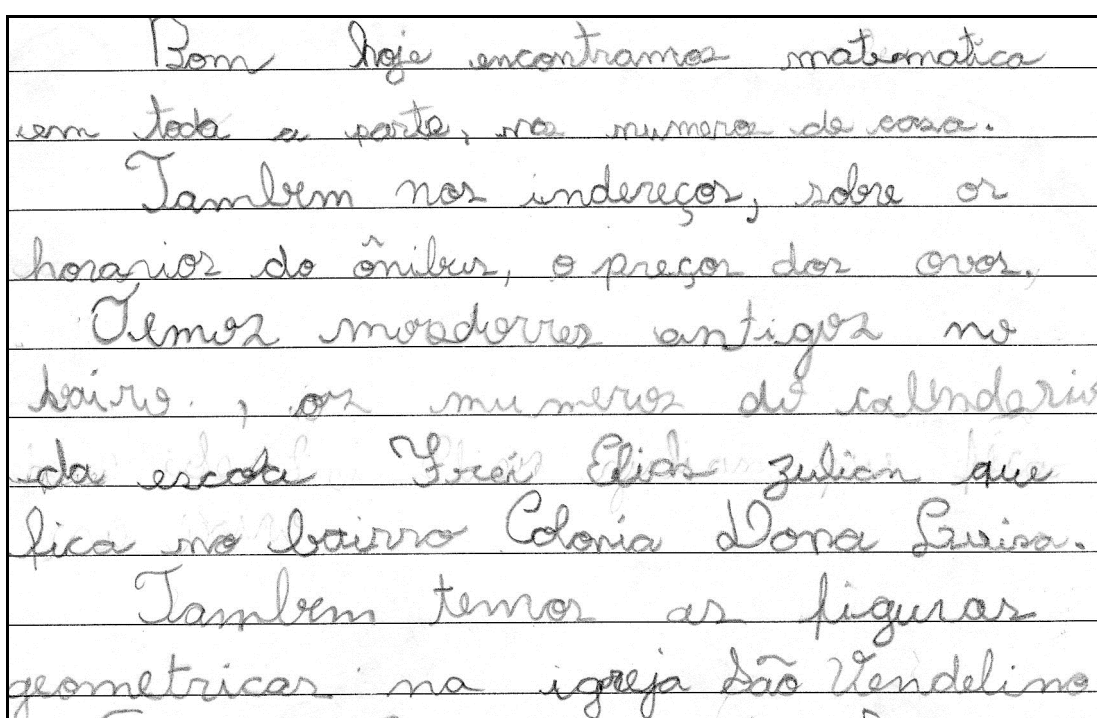 Bom hoje encontramos matematica
em toda a parte, nos numeros de casa.
Tambem nos indereços, sobre os
horarios do ônibus, o preços dos ovos.
Temos moradorres antigos no
bairo, os numeros do calendario
da escola Frei Elias Zulian que
fica no bairro Colonia Dona Luisa.
Tambem temos as figuras
geometricas na igreja São Vendelino